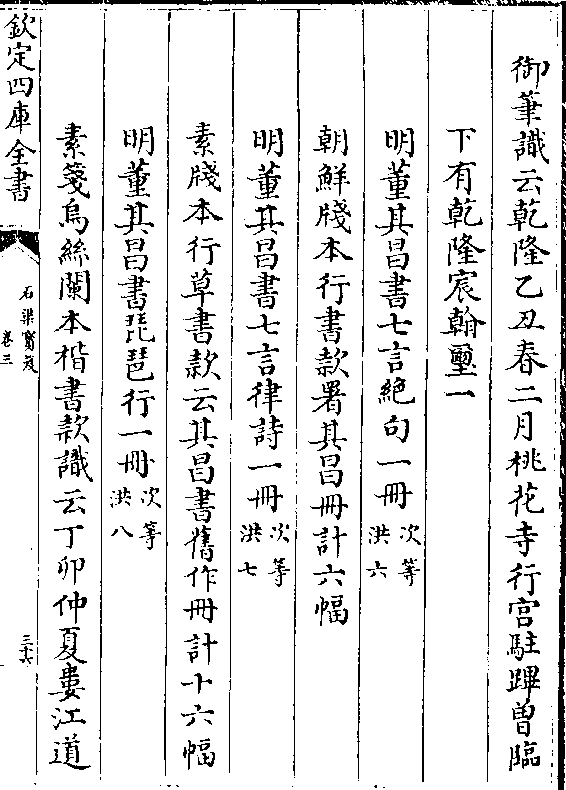 御筆識云乾隆乙丑春二月桃花寺行宫駐蹕曽臨
下有乾隆宸翰璽一
明董其昌書七言絶句一冊次等洪六
朝鮮牋本行書款署其昌冊計六幅
明董其昌書七言律詩一冊次等洪七
素牋本行草書款云其昌書舊作冊計十六幅
明董其昌書琵琶行一冊次等洪八
素箋烏絲闌本楷書款識云丁卯仲夏婁江道
欽定四庫全書
石渠寳笈
卷三
三十六